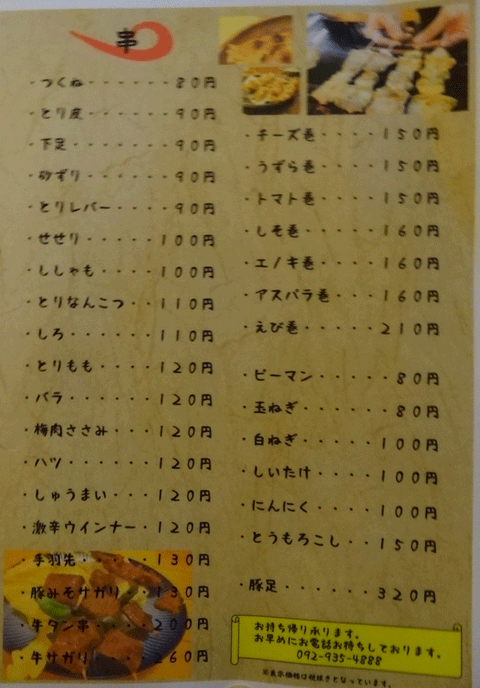 串
・つくね・・・・・・８０円
・とり皮・・・・・９０円
・下足・・・・・・９０円
・砂ずり・・・・・９０円
・とりレバー・・・・９０円
・せせり・・・・・１００円
・ししゃも・・・・１００円
・とりなんこつ・・１１０円
・しろ・・・・・・１１０円
・とりもも・・・・１２０円
・バラ・・・・・・１２０円
・梅肉ささみ・・・１２０円
・ハツ・・・・・・１２０円
・しゅうまい・・・１２０円
・激辛ウインナー・１２０円
・手羽先・・・・・１３０円
・豚みそサガリ・・１３０円
・牛タン串・・・・２００円
・牛サガリ・・・・２６０円
・チーズ巻・・・・１５０円
・うずら巻・・・・１５０円
・トマト巻・・・・１５０円
・しそ巻・・・・・１６０円
・エノキ巻・・・・１６０円
・アスパラ巻・・・１６０円
・えび巻・・・・・２１０円
・ピーマン・・・・・８０円
・玉ねぎ・・・・・・８０円
・白ねぎ・・・・・１００円
・しいたけ・・・・１００円
・にんにく・・・・１００円
・とうもろこし・・１５０円
・豚足・・・・・・３２０円
お持ち帰り承ります。
お早めにお電話お待ちしております。
092-935-4888
※表示価格は税抜きとなっています。